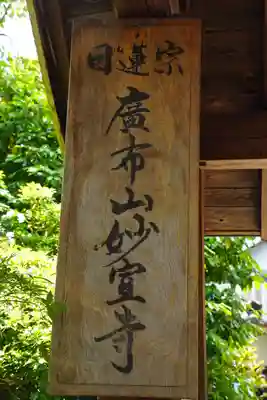 日蓮宗
廣布山妙宣寺